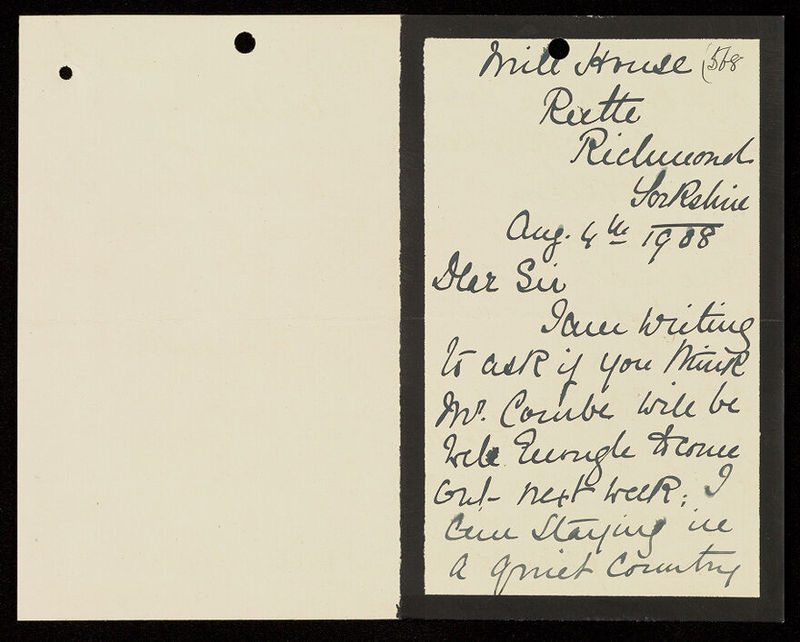 Mill House (568
Reeth
Richmond
Yorkshire
Aug. 4th 1908
Dear Sir
I am writing
to ask if you think
Mr. Combe will be
well Enough to come
out next week; I
am staying in
a quiet Country